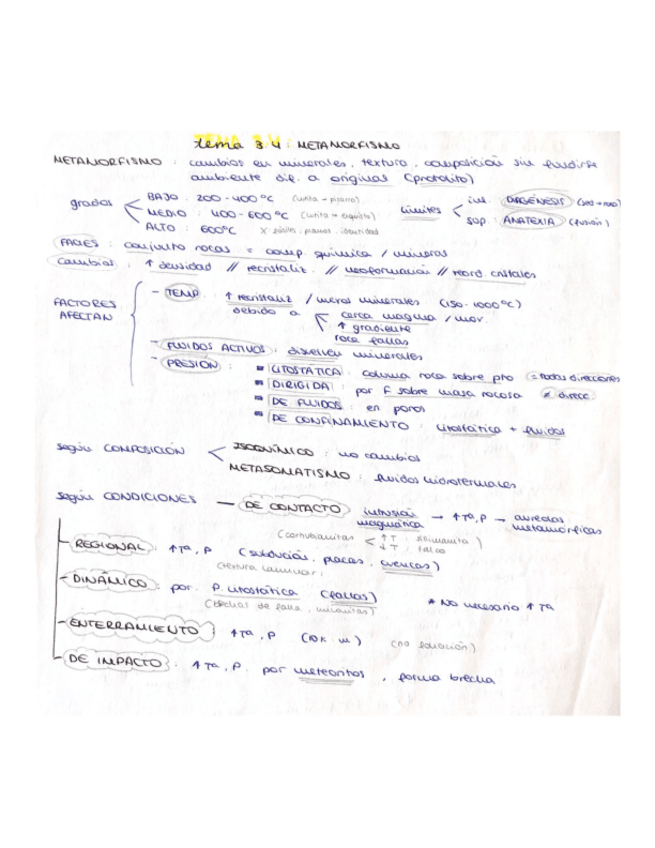 tema 3.4: METAMORFISMO
METAMORFISMO : cambios en minerales, textura, composición sin fundirse
ambiente dif. a original (protolito)
grados BAJO : 200-400ºC (lutita → pizarra)
MEDIO : 400-600ºC (lutita → esquisto)
ALTO : 600ºC x
límites inf. DIAGÉNESIS (sed → roca)
sup. ANATEXIA (fusión)
FACIES : conjunto rocas = comp. química / mineral
Cambios : ↑ densidad // recristaliz. // neoformación // reord. cristales
FACTORES AFECTAN
- TEMP. ↑ recristaliz / nuevos minerales (150-1000ºC)
debido a cerca magma / mov.
↑ gradiente
roce fallas
- FLUIDOS ACTIVOS : disuelven minerales
- PRESIÓN : LITOSTÁTICA : columna roca sobre pto (= todas direcciones)
DIRIGIDA : por F sobre masa rocosa (≠ direcc.)
DE FLUIDOS : en poros
DE CONFINAMIENTO : litostática + fluidos
según COMPOSICIÓN ISOQUÍMICO : no cambios
METASOMATISMO : fluidos hidrotermales
según CONDICIONES — DE CONTACTO intrusión magmática → ↑Tª, P → aureolas metamórficas
(corneanitas ↑T silimanita
↓T talco)
- REGIONAL : ↑Tª, P (subducción, placas, cuencas)
(textura laminar)
- DINÁMICO : por P. litostática (fallas) * No necesario ↑Tª
(brechas de falla, milonitas)
- ENTERRAMIENTO : ↑Tª, P (10 k. m) (no foliación)
- DE IMPACTO : ↑Tª, P. por meteoritos, forma brecha